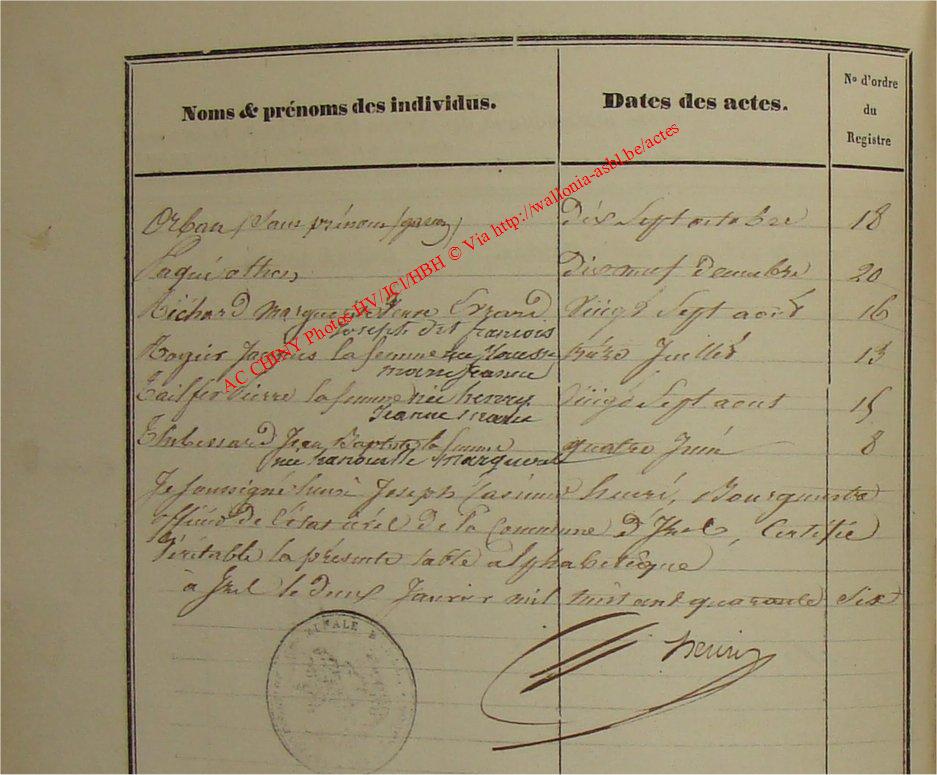 Noms & prénoms des individus. Dates des actes. No d'ordre
du
Registre
Orban (sans prénom) garçon dix Sept octobre 18
dix neuf décembre 20
Richard Marguerite Pierre Evrard Vingt Sept aout 16
Joseph dit françois
Rogier la femme née treize Juillet 13
Tailfer Pierre la femme née henry Vingt Sept aout 15
Jeanne Marie
Jean Baptiste la femme quatre Juin 8
née
Je Soussigné Joseph henri, Bourgmestre
officier de l'état civil de la Commune d'Izel, Certifie
Véritable la présente table alphabétique
à Izel le deux Janvier mil huit cent quarante Six
henri
RURALE
AC CHINY Photos HV/JCl/HBH © Via http://wallonia-asbl.be/actes